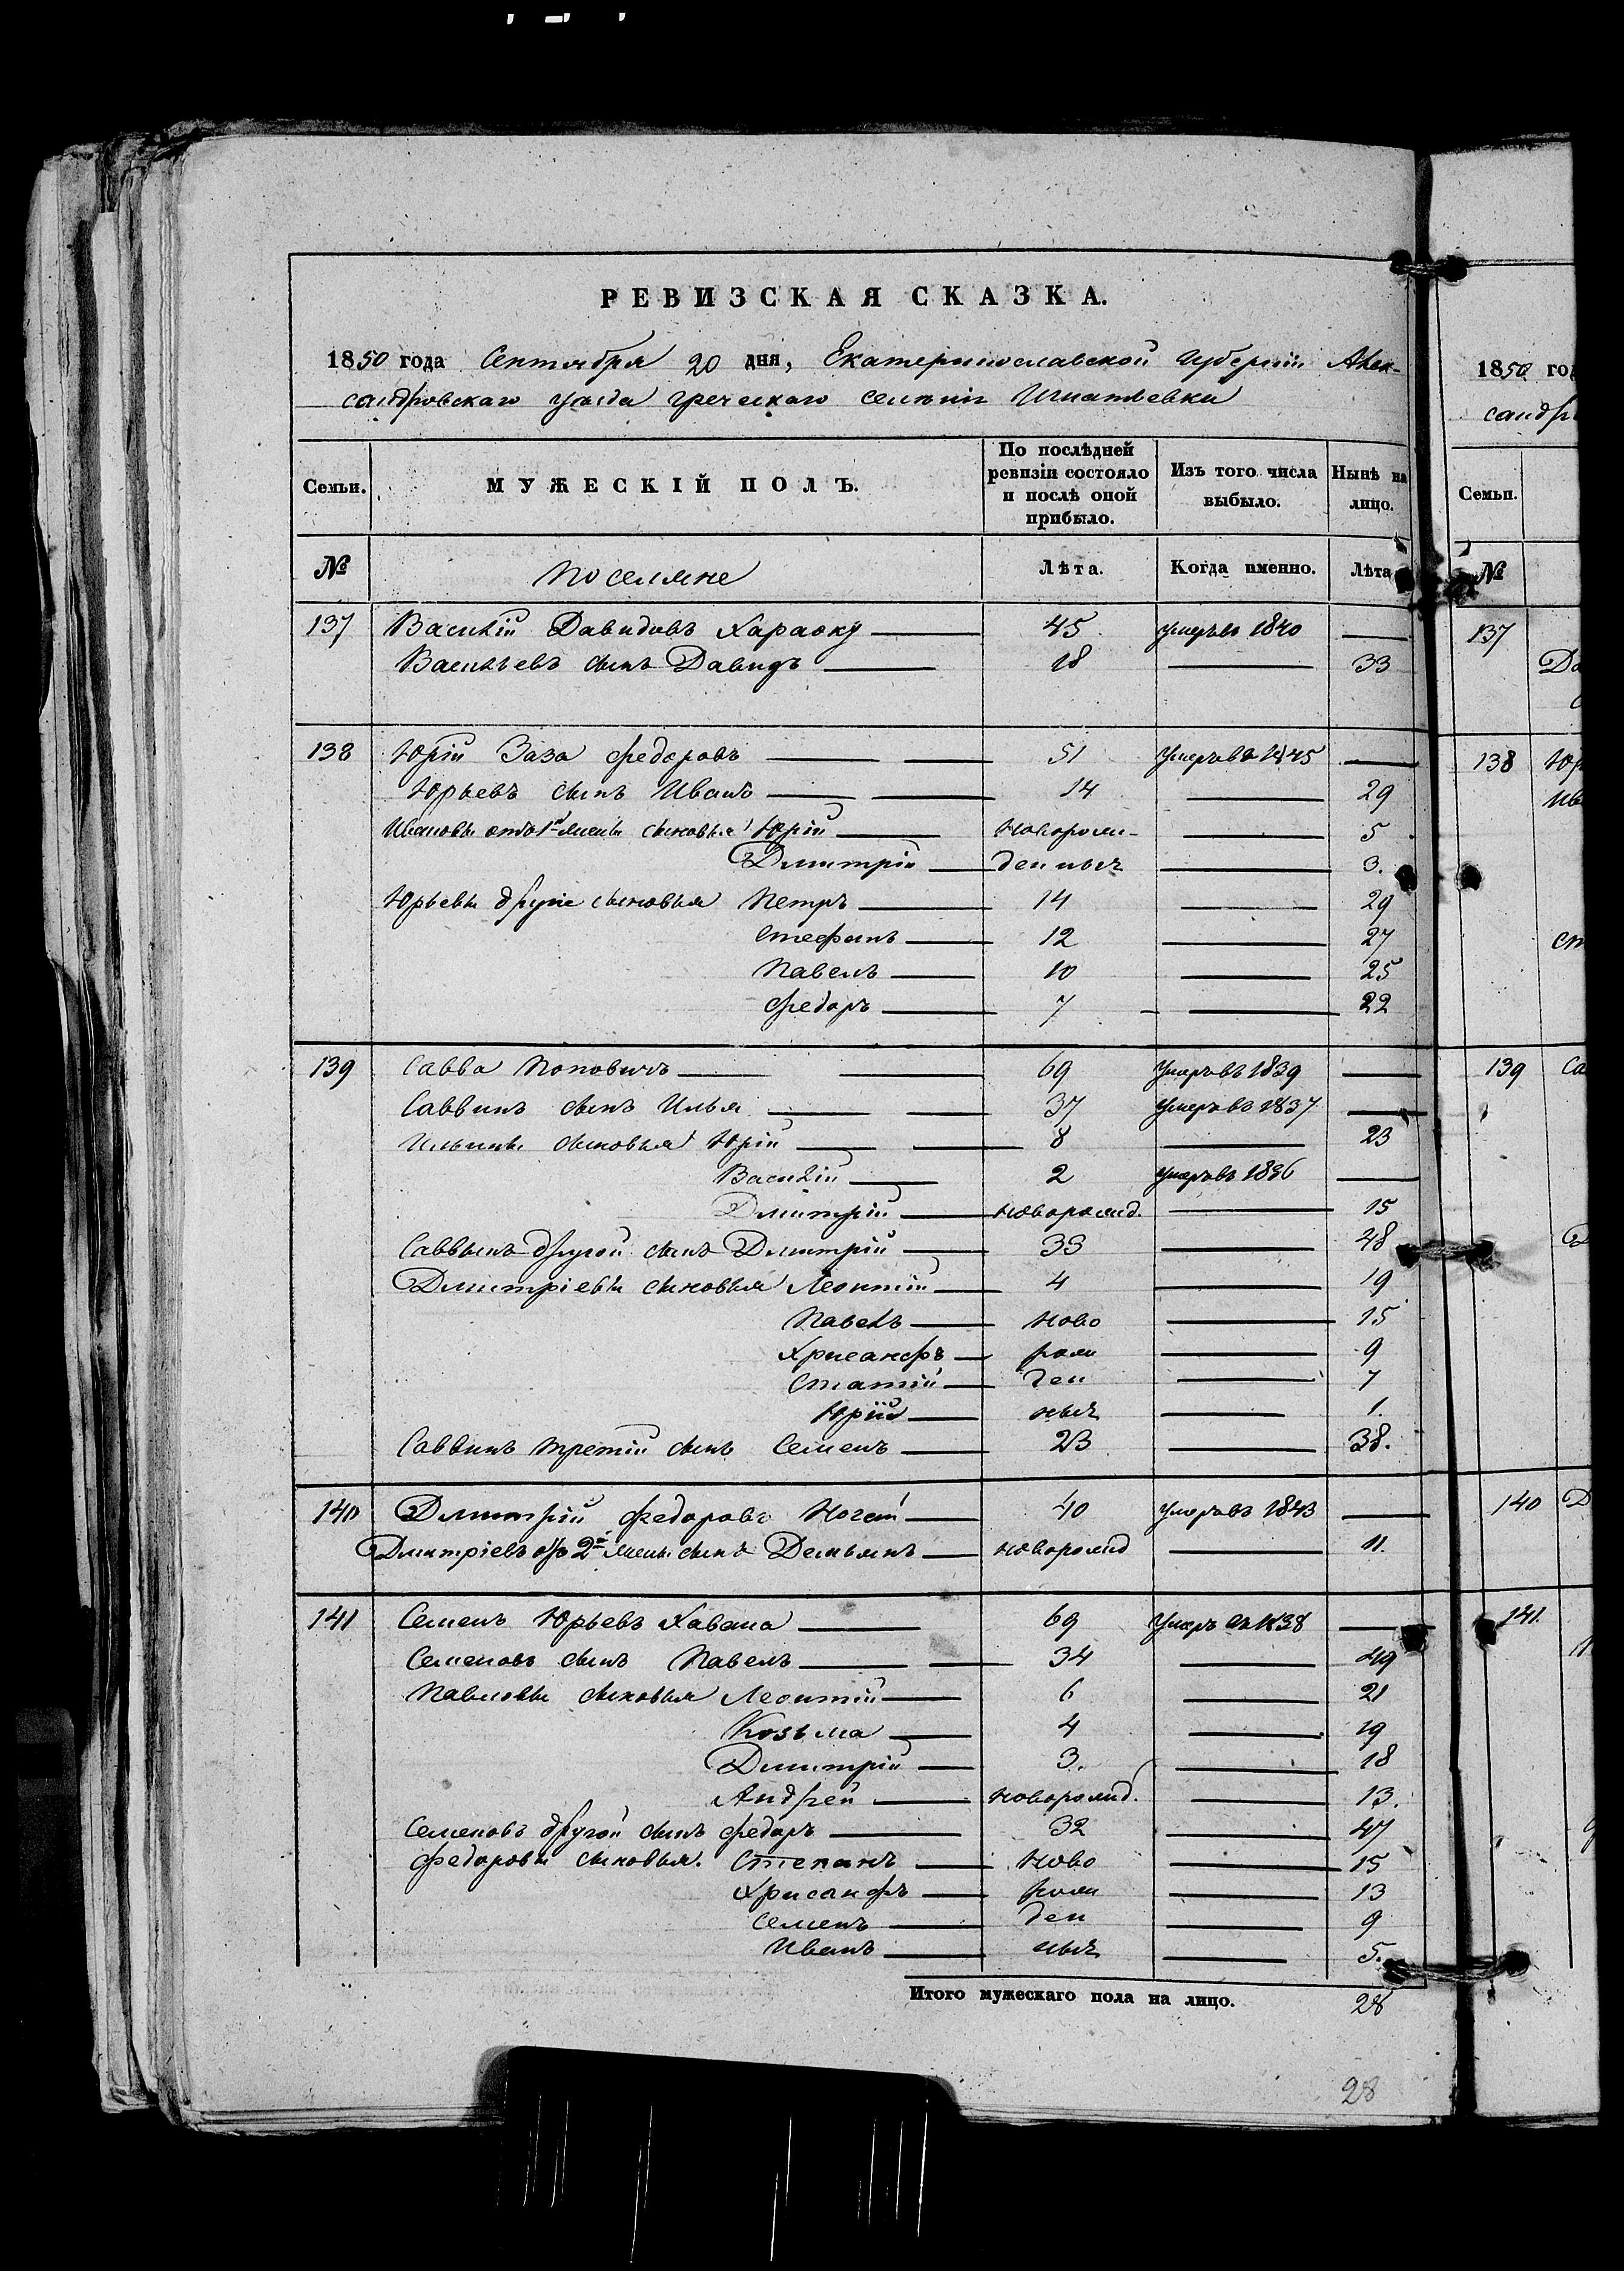 РЕВИЗСКАЯ СКАЗКА.
1850 года Сентября 20 дня, Екатеринославской Губерніи Алек-
сандровскаго уѣзда греческаго селенія Игнатьевки
Семьи. МУЖЕСКІЙ ПОЛЪ. По послѣдней ревизіи состояло и послѣ оной прибыло. Изъ того числа выбыло. Нынѣ на лицо.
№ Поселяне Лѣта. Когда именно. Лѣта
137 Василій Давидовъ Хараожу 45 умеръ въ 1840 —
Васильевъ сынъ Давидъ 18 — 33
138 Юрій Заза Федоровъ 51 Умеръ въ 1845 —
Юрьевъ сынъ Иванъ 14 — 29
Ивановы отъ 1й жены сыновья Юрій новорож- — 5
Дмитрій денныхъ — 3.
Юрьевы другіе сыновья Петръ 14 — 29
Стефанъ 12 — 27
Павелъ 10 — 25
Федоръ 7 — 22
139 Савва Поповичъ 69 Умеръ въ 1839 —
Саввинъ сынъ Илья 37 Умеръ въ 1837 —
Ильины сыновья Юрій 8 — 23
Василій 2 умеръ въ 1836 —
Дмитрій новорожд. — 15
Саввинъ другой сынъ Дмитрій 33 — 48
Дмитріевы сыновья Леонтій 4 — 19
Павелъ ново — 15
Хрисанфъ рож — 9
Статій ден — 7
Юрій ныхъ — 1.
Саввинъ третій сынъ Семенъ 23 — 38.
140 Дмитрій Федоровъ Ногай 40 Умеръ въ 1843 —
Дмитріевъ отъ 2й жены сынъ Демьянъ новорожд — 11.
141 Семенъ Юрьевъ Хавана 69 Умеръ въ 1838 —
Семеновъ сынъ Павелъ 34 — 49
Павловы сыновья Леонтій 6 — 21
Козьма 4 — 19
Дмитрій 3. — 18
Андрей новорожд. — 13.
Семеновъ другой сынъ Федоръ 32 — 47
Федоровы сыновья. Степанъ ново — 15
Хрисанфъ рож — 13
Семенъ ден — 9
Иванъ ныхъ — 5.
Итого мужескаго пола на лицо. 28
28
1850 год
сандр
Семьи.
№
137
До
138 Юр
Ив
ст
139 Са
Д
140 Д
141.